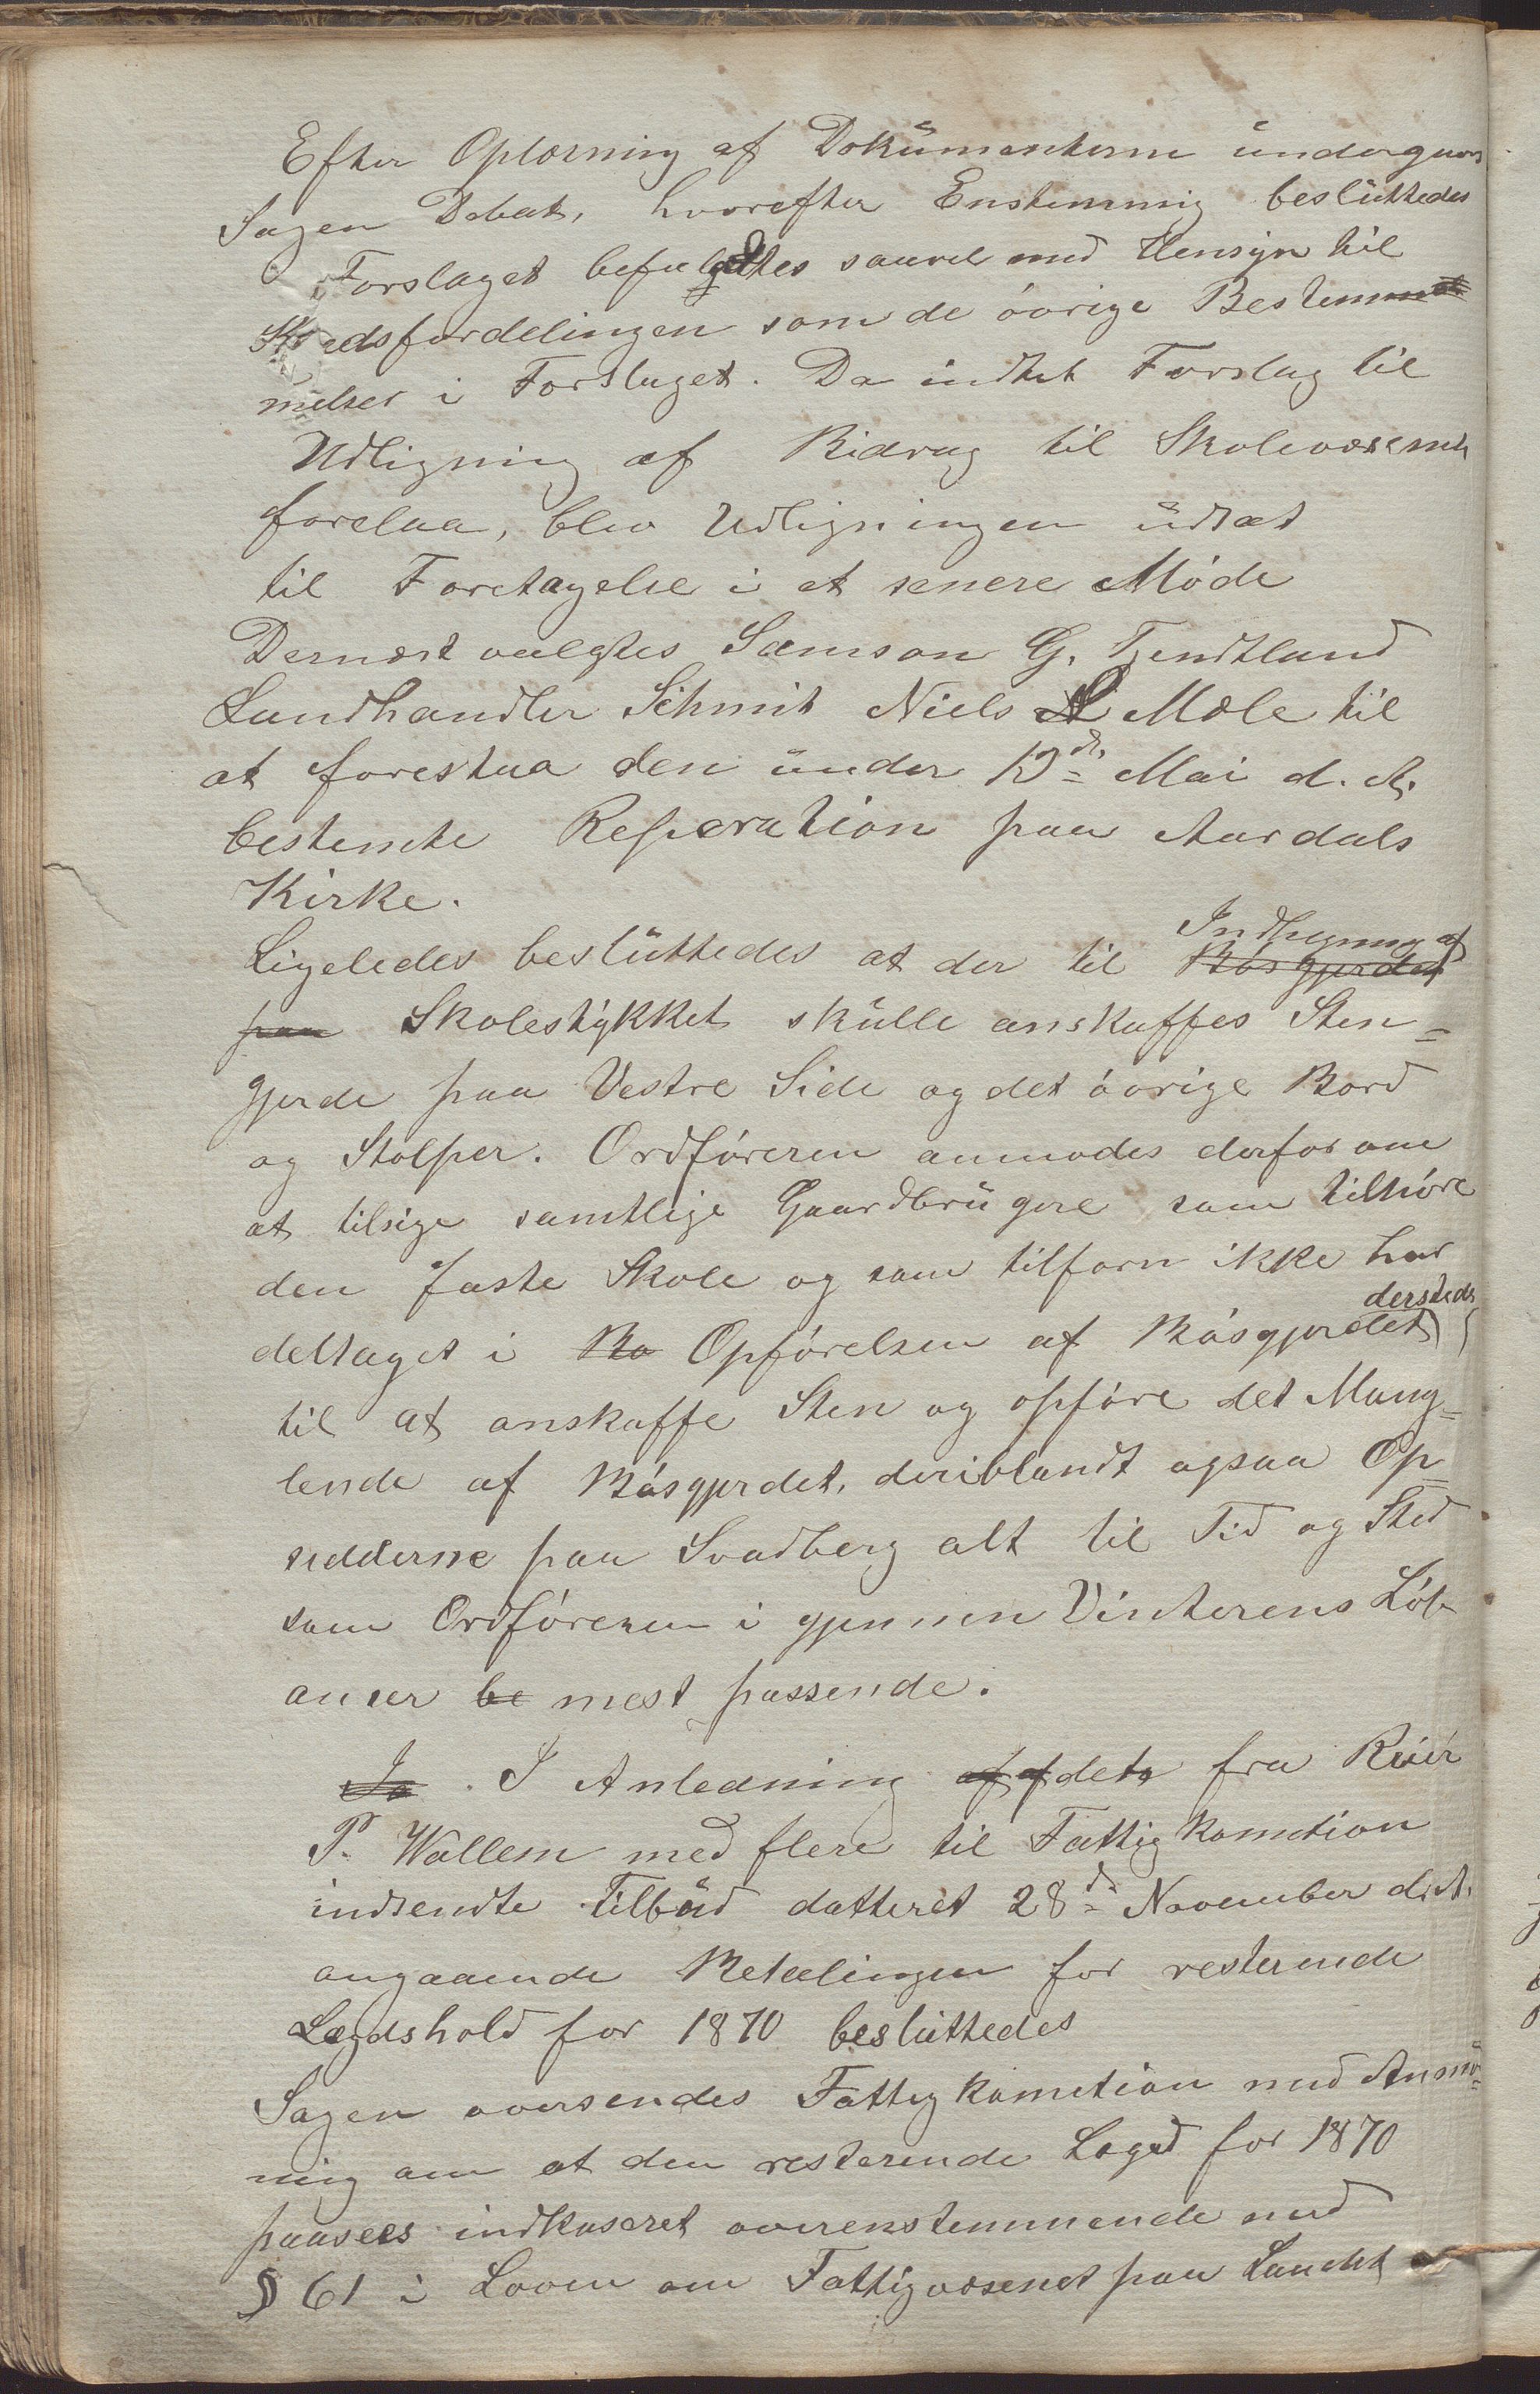 Efter Oplæsning af Dokumenterne undergaves
Sagen Debat, hvorefter Enstemmig besluttedes
Forslaget befulgtes saavel med Hensyn til
Kredsfordelingen som de övrige Bestemm
melser i Forslaget. Da indtet Forslag til
Udligning af Bidrag til Skolevæsenet
forelaa, blev Udligningen udsat
til Foretagelse i et senere Möde
Dernæst valgtes Samson G. Tjendtland
Landhandler Schmit Niels Mæle til
at forestaa den under 12de Mai d. A.
bestemte Reperation paa Aardals
Kirke.
Ligeledes besluttedes at der til Bösgjerdet Indhegning af
paa Skolestykket skulle anskaffes Sten=
gjerde paa Vestre Side og det övrige Bord
og Stolper. Ordföreren anmodes derfor om
at tilsige samtlige Gaardbrugere som tilhöre
den faste Skole og som tilforn ikke har
deltaget i Bö Opförelsen af Bösgjerdet dersteds
til at anskaffe Sten og opföre det Mang=
lende af Bösgjerdet, deriblandt ogsaa Op=
sidderne paa Svadberg alt til Tid og Sted
som Ordföreren i gjennem Vinterens Löb
anser be mest passende.
Ja. I Anledning af af det fra
P. Wallem med flere til Fattigkomition
indsendte Tilbud datteret 28de November d. A.
angaaende Betalingen for resterende
Lægdshold for 1870 besluttedes
Sagen oversendes Fattigkomition med Anmo=
ning om at den resterende Lægd for 1870
paasees indkaseret overenstemmende med
§ 61 i Loven om Fattigvæsenet paa Landet